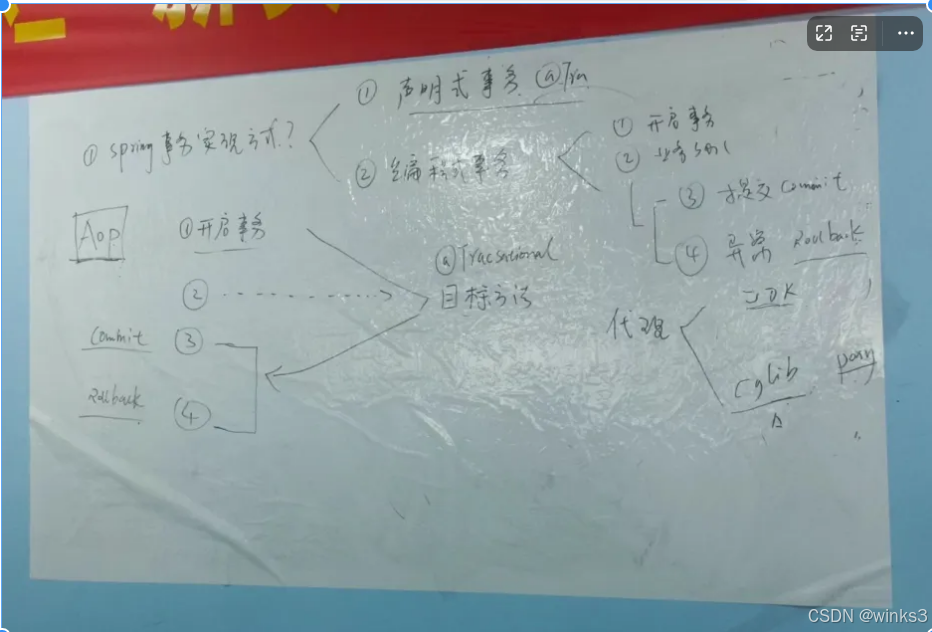 ① 声明式事务 @Tra
① spring事务实现方式?
② 编程式事务
① 开启事务
② 业务
③ 提交 Commit
④ 异常 Rollback
Aop
① 开启事务
②
Commit ③
Rollback ④
@Tracsational
目标方法
代理
JDK
Cglib
CSDN @winks3